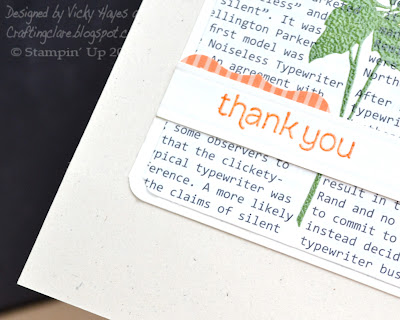 Designed by Vicky Hayes
Craftingclare.blogspot.c
© Stampin' Up 2
and
silent". It was
llington Parker
first model was
Noiseless Typewriter
An agreement with
were
North
After
thank you
some observers to
that the clickety-
ypical typewriter was
ference. A more likely
the claims of silent
result in t
Rand and no
to commit to
instead decid
typewriter bus